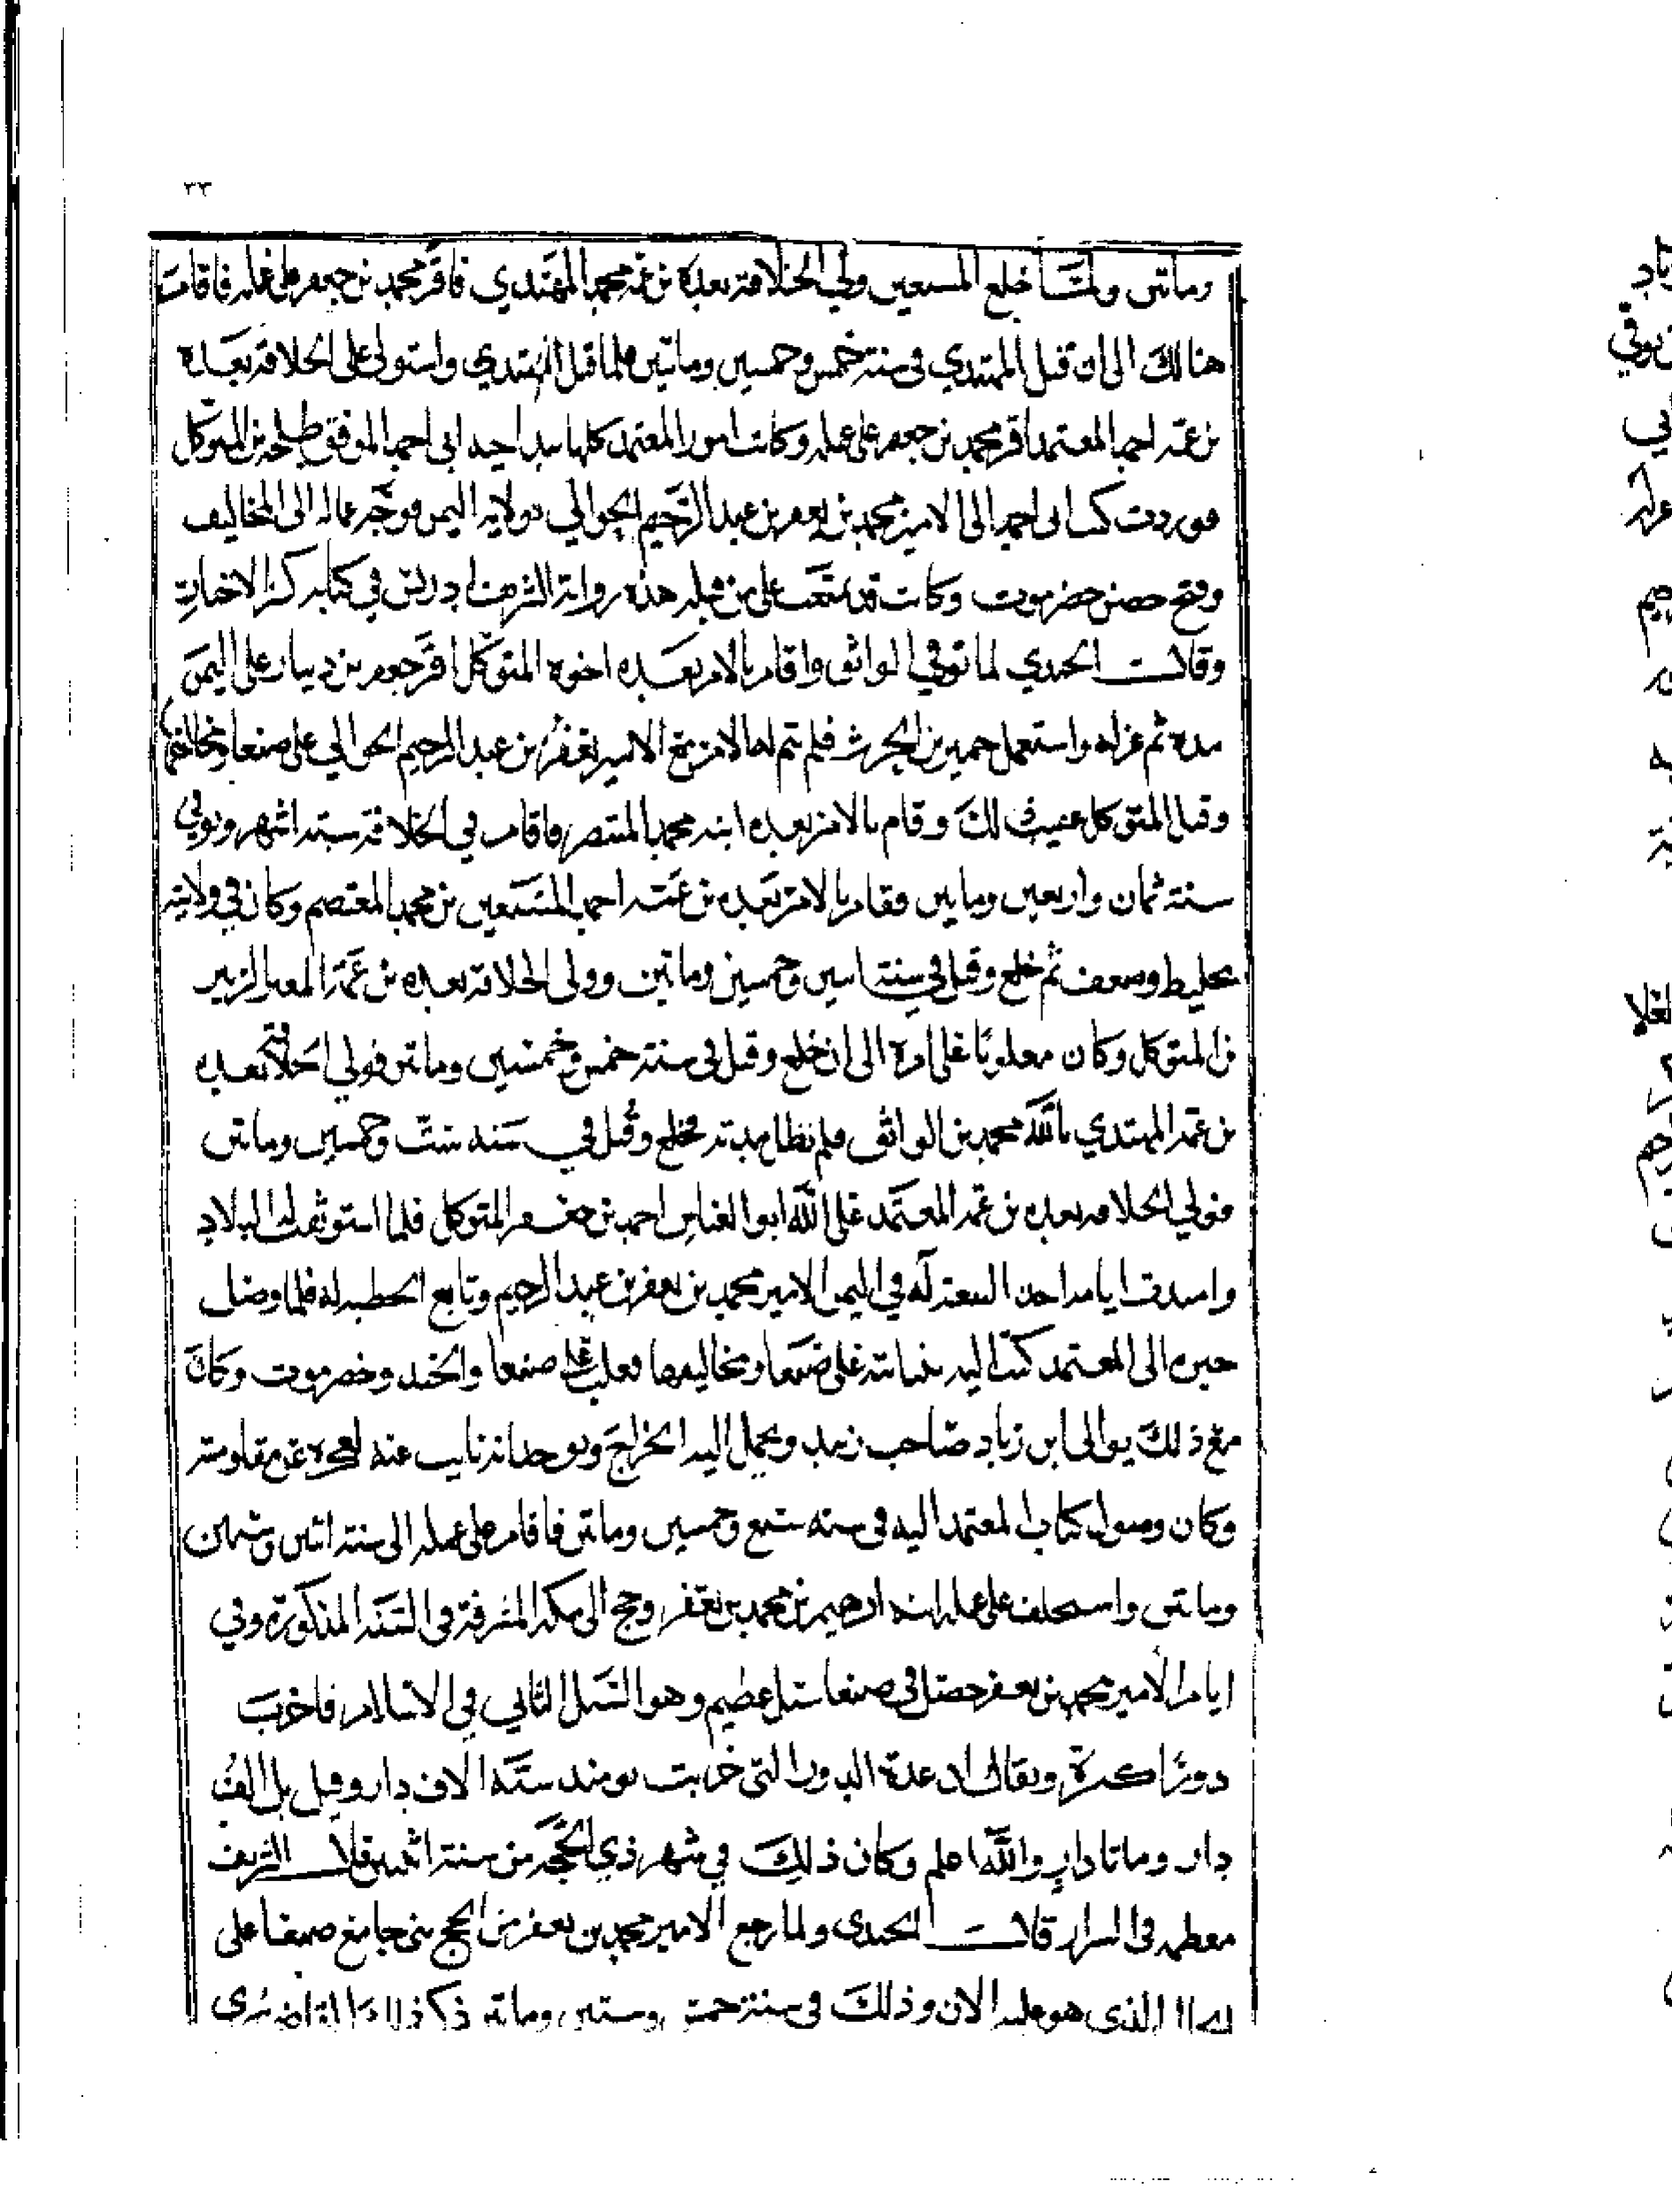 ٣٣
ومأتين ولما خلع المستعين ولي الخلافة بعده بن عمه محمد المهتدي فاقر محمد بن جعفر على عمله فاقامَ
هنالك الى ان قتل المهتدي في سنة خمس وخمسين وماتين فلما قتل المهتدي واستولى على الخلافة بعده
بن عمه احمد المعتمد اقر محمد بن جعفر على عمله وكانت امور المعتمد كلها بيد اخيه ابي احمد الموفق طلحة بن المتوكل
فوردت كتب ابي احمد الى الامير محمد بن يعفر بن عبد الرحيم الحوالي بولاية اليمن فوجه عماله الى المخاليف
وفتح حصن حضرموت وكانت قد على من قبله هذه رواية الشريف ادريس في كتابه كنز الاخبار
وقال الجندي لما توفي الواثق واقام بالامر بعده اخوه المتوكل اقر جعفر بن دينار على اليمن
مدة ثم عزله واستعمل حمير بن الحرث فلم يتم له الامر مع الامير يعفر بن عبد الرحيم الحوالي على صنعا ومخاليفها
وقتل المتوكل عقيب ذلك وقام بالامر بعده ابنه محمد المنتصر فاقام في الخلافة ستة اشهر وتوفي
سنة ثمان واربعين وماتين وقام بالامر بعده بن عمه احمد المستعين بن محمد المعتصم وكان في ولايته
تخليط وضعف ثم خلع وقتل في سنة اثنين وخمسين وماتين وولي الخلافة بعده بن عمه المعتز الزبير
بن المتوكل وكان مغلوبا على امره الى ان خلع وقتل في سنة خمس وخمسين وماتين فولي الخلافة بعده
بن عمه المهتدي بالله محمد بن الواثق فلم تطل مدته فخلع وقتل في سنة ست وخمسين وماتين
فولي الخلافة بعده بن عمه المعتمد على الله ابو العباس احمد بن جعفر المتوكل فلما استوثقت له البلاد
وامتدت ايامه اخذ البيعة له في اليمن الامير محمد بن يعفر بن عبد الرحيم وتابع الخطبة له فلما وصل
خبره الى المعتمد كتب اليه بنيابته على صنعا ومخاليفها فغلب على صنعا والجند وحضرموت وكان
مع ذلك يوالي ابن زياد صاحب زبيد ويحمل اليه الخراج ويوهم انه نايب عنه لعجزه عن مقاومته
وكان وصول كتاب المعتمد اليه في سنة سبع وخمسين وماتين فاقام على عمله الى سنة اثنين وستين
وماتين واستخلف على عمله ابنه ابرهيم بن محمد بن يعفر وحج الى مكة المشرفة في السنة المذكورة وفي
ايام الامير محمد بن يعفر حصل في صنعا سيل عظيم وهو السيل الثاني في الاسلام فاخرب
دورا كثيرة ويقال ان عدة الدور التي خربت يومئذ ستة الاف دار وقيل بل الف
دار وماتا دار والله اعلم وكان ذلك في شهر ذي الحجة من سنة اثنين قال الشريف
في السرار قال الجندي ولما رجع الامير محمد بن يعفر من الحج بنى جامع صنعا على
الحال الذي هو عليه الان وذلك في سنة خمس وستين وماية ذكر ذلك القاضي سري